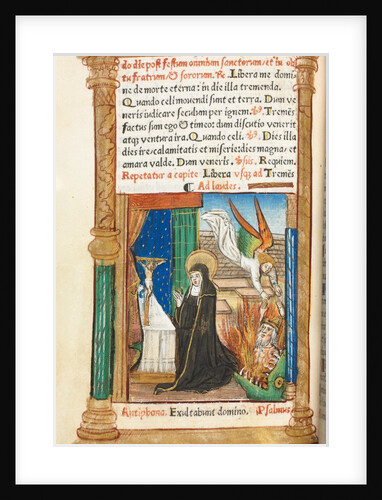 do die post festum omnium sanctorum, et in ob
itu fratrum, & sororum. R̄e. Libera me domi
ne de morte eterna: in die illa tremenda.
Quando celi movendi sunt et terra. Dum ve
neris iudicare seculum per ignem. Tremēs
factus sum ego & timeo: dum discutio venerit
atq; ventura ira. Quando celi. Dies illa
dies ire, calamitatis et miserie: dies magna, et
amara valde. Dum veneris. Requiem.
Repetatur a capite Libera usq; ad Tremēs
¶ Ad laudes.
Antiphona. Exultabunt domino. Psalmus.